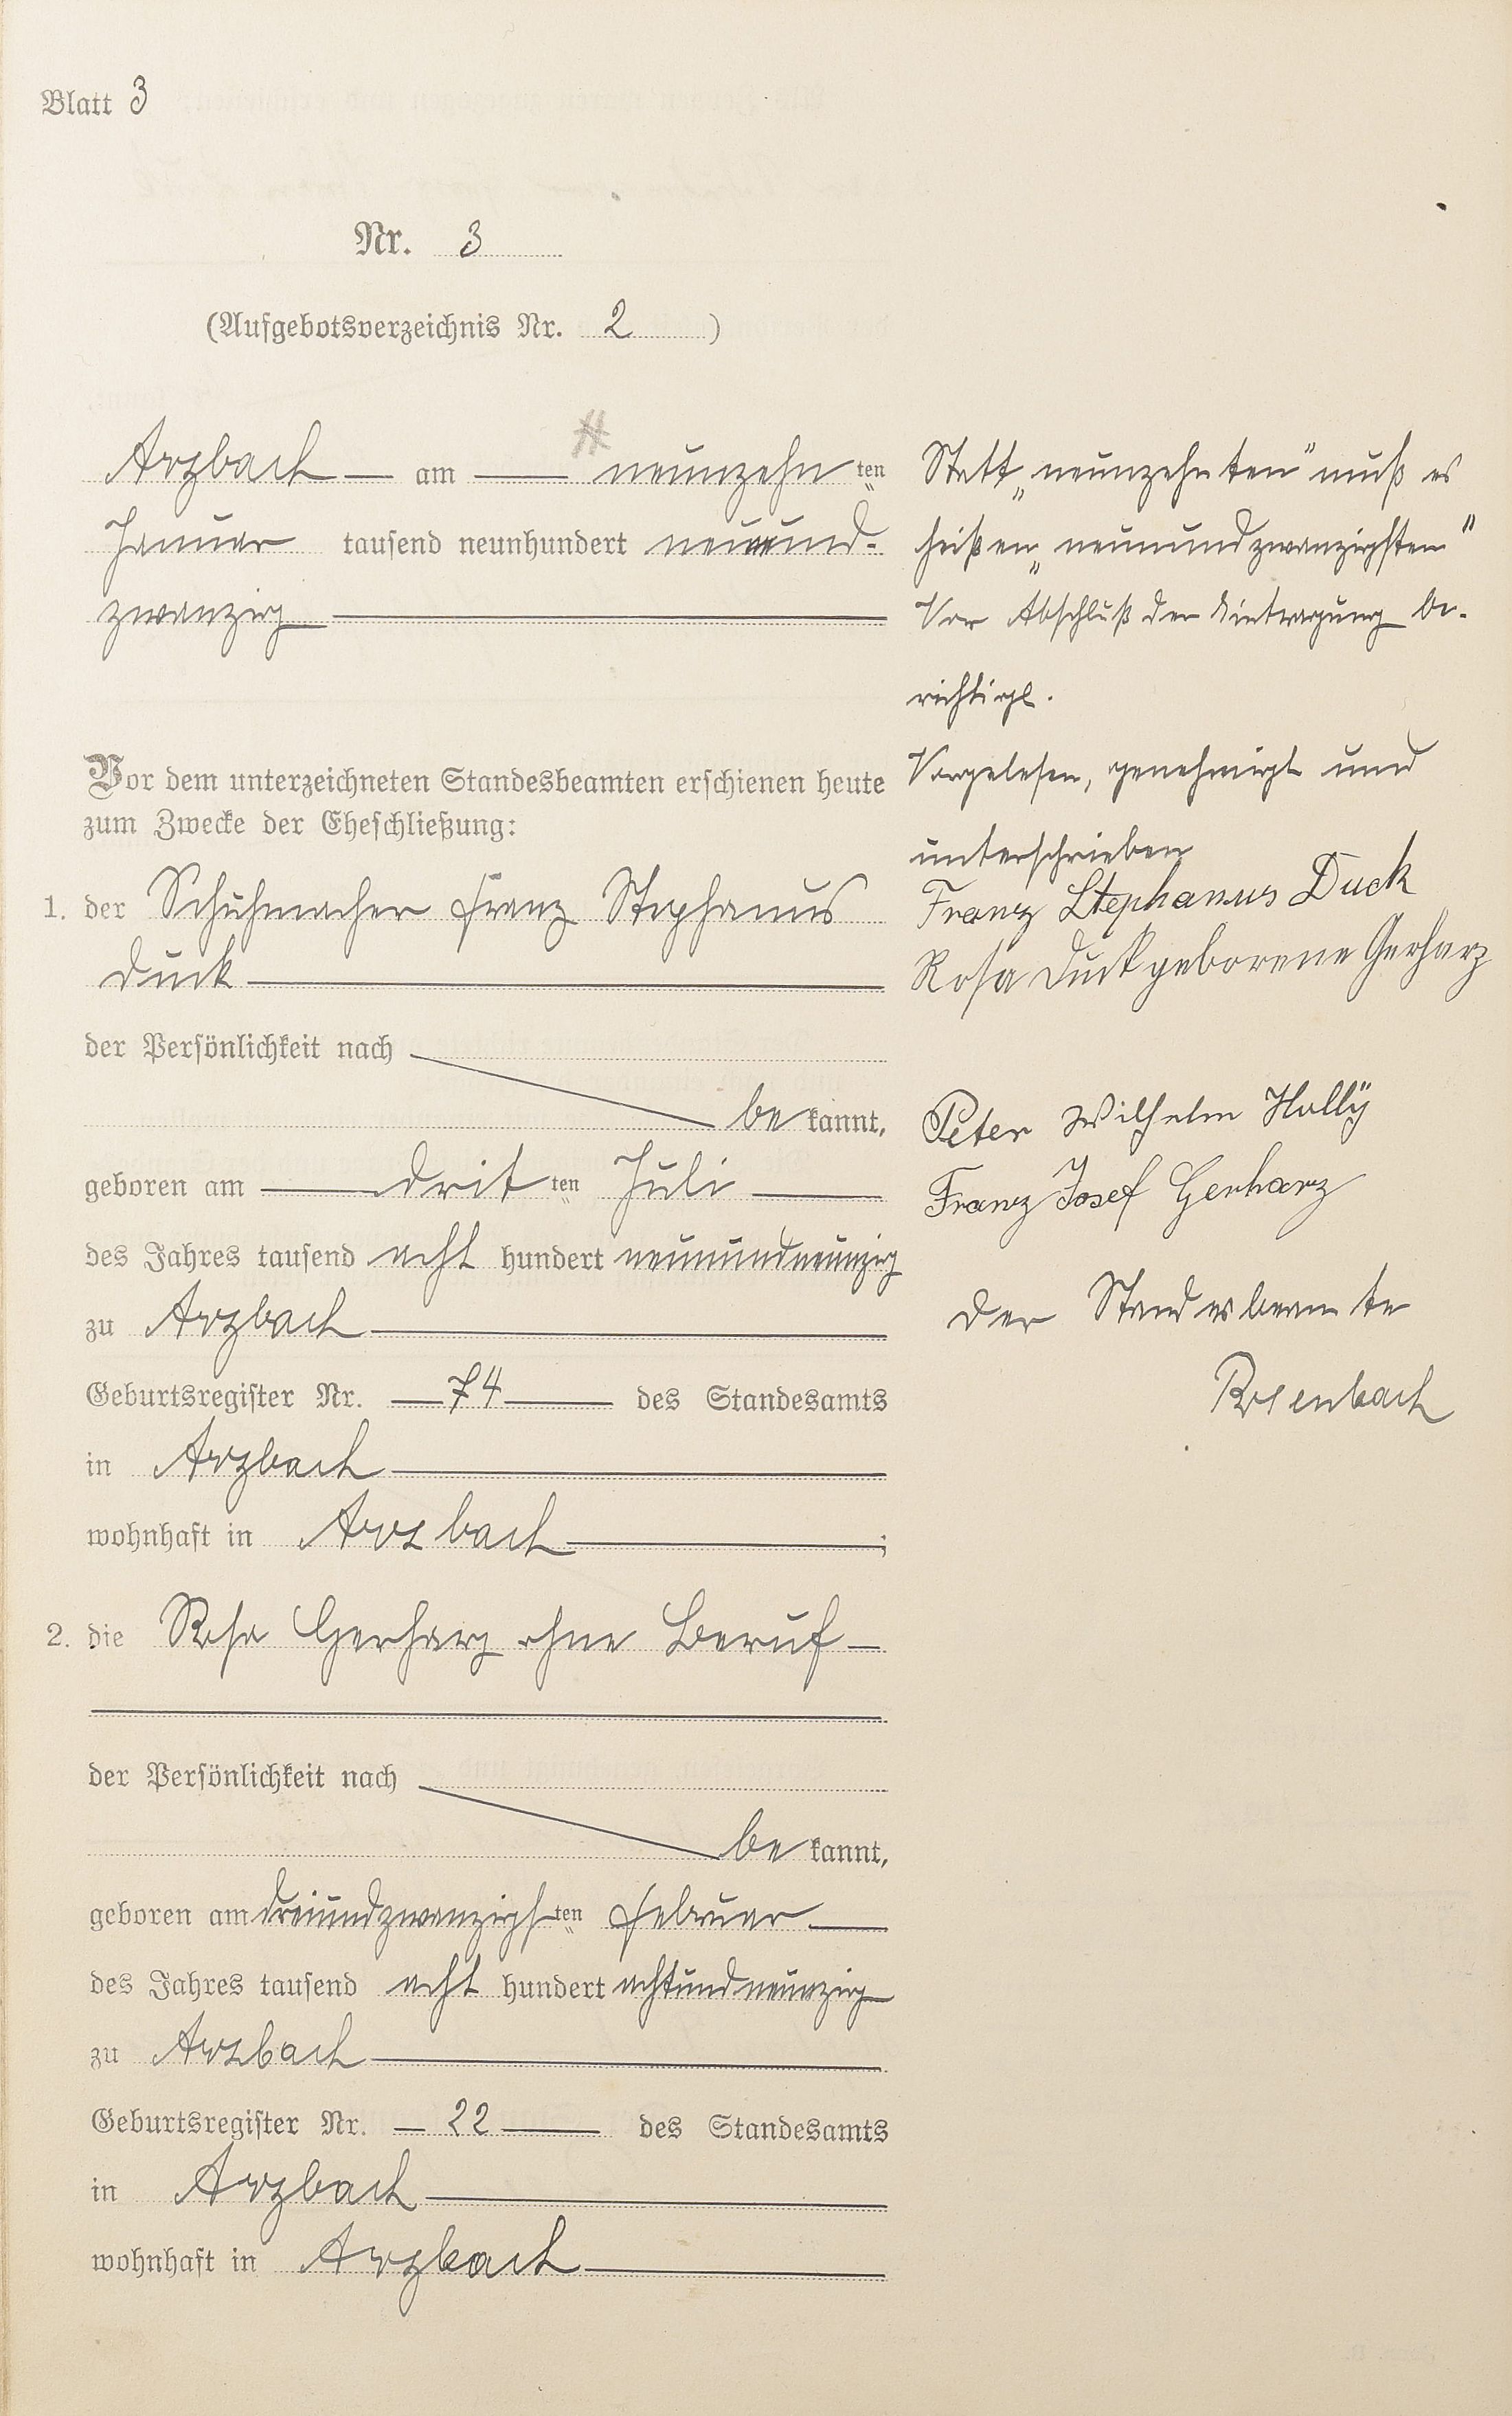 Blatt 3
Nr. 3
(Aufgebotsverzeichnis Nr. 2)
Arzbach — am — neunzehn ten
Januar tausend neunhundert neunund-
zwanzig
Vor dem unterzeichneten Standesbeamten erschienen heute
zum Zwecke der Eheschließung:
1. der Schuhmacher Franz Stephanus
Duck
der Persönlichkeit nach
be kannt,
geboren am — drit ten Juli —
des Jahres tausend acht hundert neunundneunzig
zu Arzbach
Geburtsregister Nr. — 74 — des Standesamts
in Arzbach
wohnhaft in Arzbach ;
2. die Rosa Gerharz ohne Beruf —
der Persönlichkeit nach
be kannt,
geboren am dreiundzwanzigs ten Februar —
des Jahres tausend acht hundert achtundneunzig
zu Arzbach
Geburtsregister Nr. — 22 — des Standesamts
in Arzbach
wohnhaft in Arzbach
Statt „neunzehnten" muß es
heißen „neunundzwanzigsten"
Vor Abschluß der Eintragung be-
richtigt.
Vorgelesen, genehmigt und
unterschrieben
Franz Stephanus Duck
Rosa Duck geborene Gerharz
Peter Wilhelm Hollÿ
Franz Josef Gerharz
Der Standesbeamte
Rosenbach